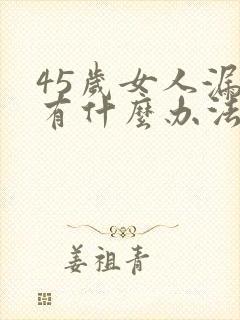 45歲女人漏
有什麼办法
姜祖青